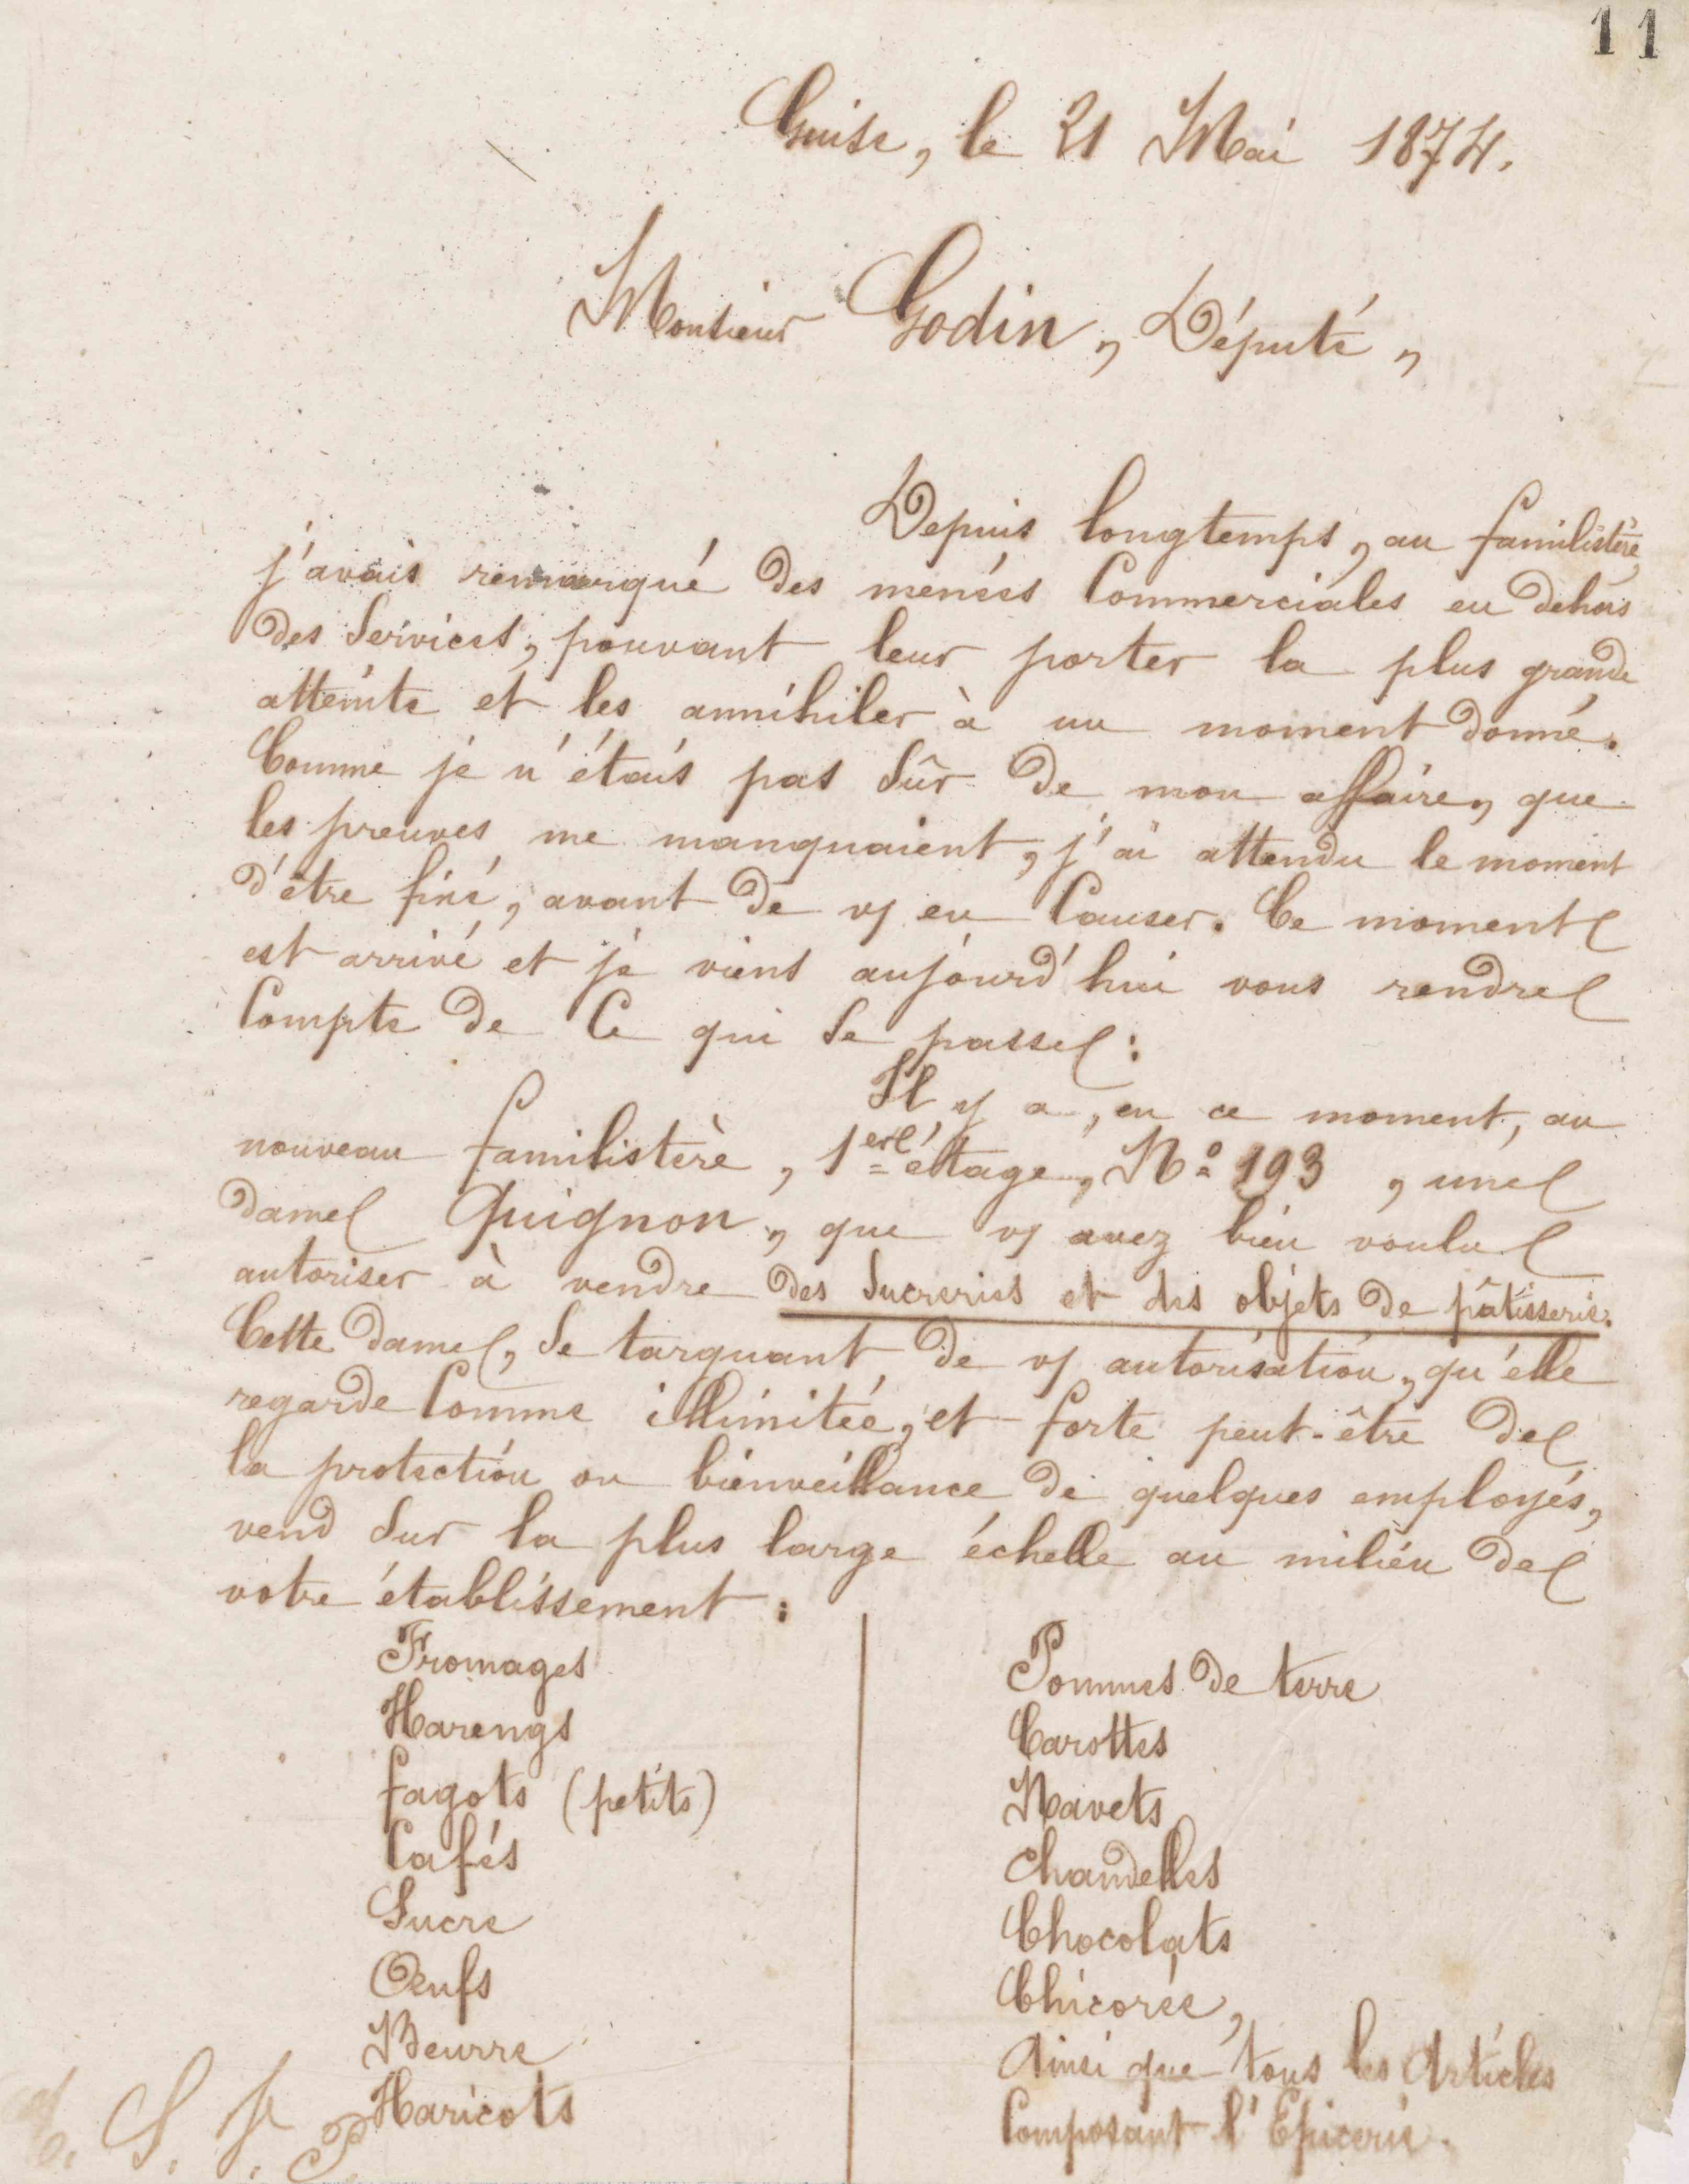 11
Guise, le 21 Mai 1874.
Monsieur Godin, Député,
Depuis longtemps, au familistère,
j'avais remarqué des menées Commerciales en dehors
des Services, pouvant leur porter la plus grande
atteinte et les annihiler à un moment donné.
Comme je n'étais pas sûr de mon affaire, que
les preuves me manquaient, j'ai attendu le moment
d'être fixé, avant de vs en Causer. Ce moment
est arrivé et je viens aujourd'hui vous rendre
Compte de Ce qui se passe :
Il y a, en ce moment, au
nouveau familistère, 1er étage, No 193, une
dame Quignon, que vs avez bien voulu
autoriser à vendre des Sucreries et des objets de pâtisserie.
Cette dame, se targuant de vs autorisation, qu'elle
regarde Comme illimitée, et forte peut-être de
la protection ou bienveillance de quelques employés,
vend sur la plus large échelle au milieu de
votre établissement :
Fromages
Harengs
fagots (petits)
Cafés
Sucre
Œufs
Beurre
Haricots
Pommes de terre
Carottes
Navets
Chandelles
Chocolats
Chicorée,
Ainsi que tous les Articles
Composant l'Epicerie.
T. S. V. P.